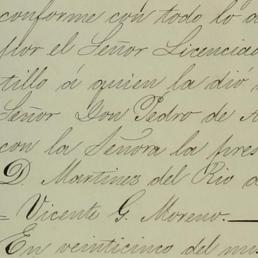 conforme con todo lo
por el Señor Licenciado
tillo á quien la dio
Señor Don Pedro de
con la Señora la
D. Martinez del Rio
= Vicente G. Moreno.
En veinticinco del